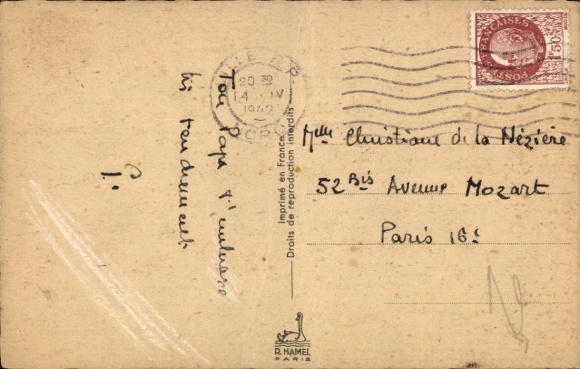 Ton Papa t'embrasse
très tendrement
P.
20 30
14 IV
1942
Imprimé en France
Droits de reproduction interdits
R. HAMEL
PARIS
POSTES FRANÇAISES
1F50
Mlle Christiane de la Nézière
52 Bis Avenue Mozart
Paris 16e